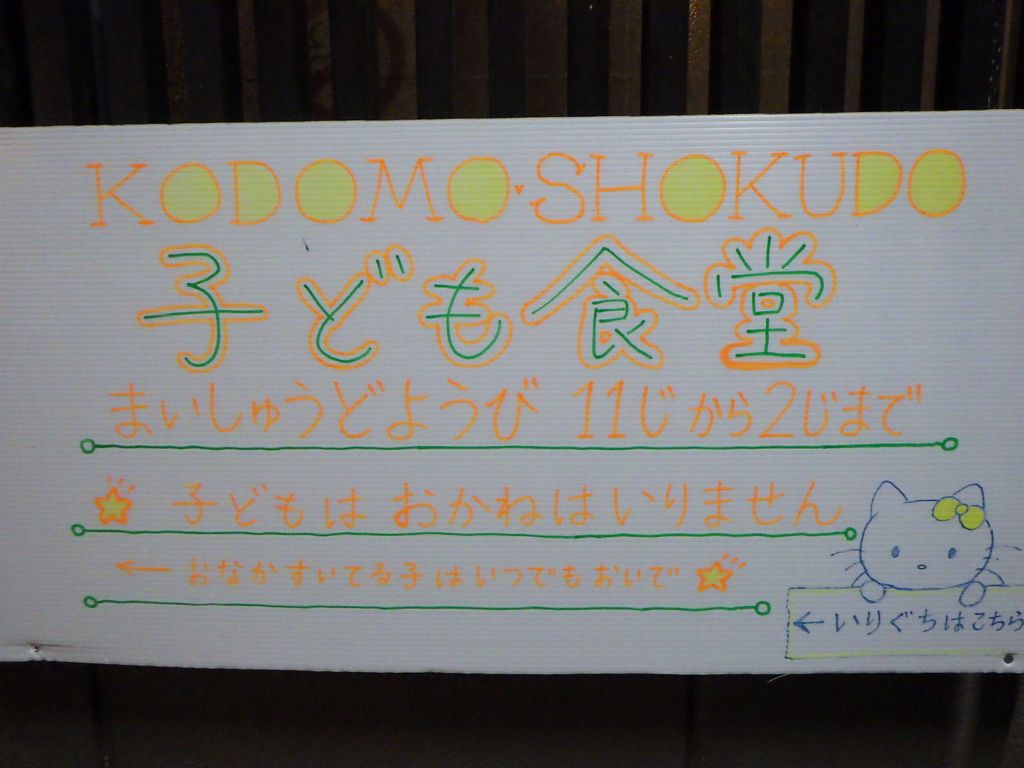 KODOMO・SHOKUDO
子ども食堂
まいしゅうどようび 11じから2じまで
子どもは おかねはいりません
← おなかすいてる子はいつでもおいで
←いりぐちはこちら